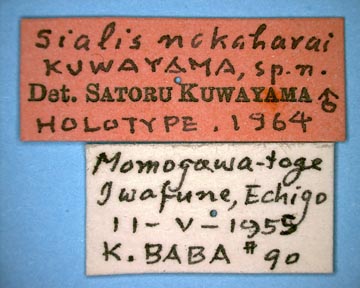 Sialis nakaharai
KUWAYAMA, sp.n.
Det. SATORU KUWAYAMA ♂
HOLOTYPE, 1964
Momogawa-toge
Iwafune, Echigo
11-V-1955
K. BABA #90